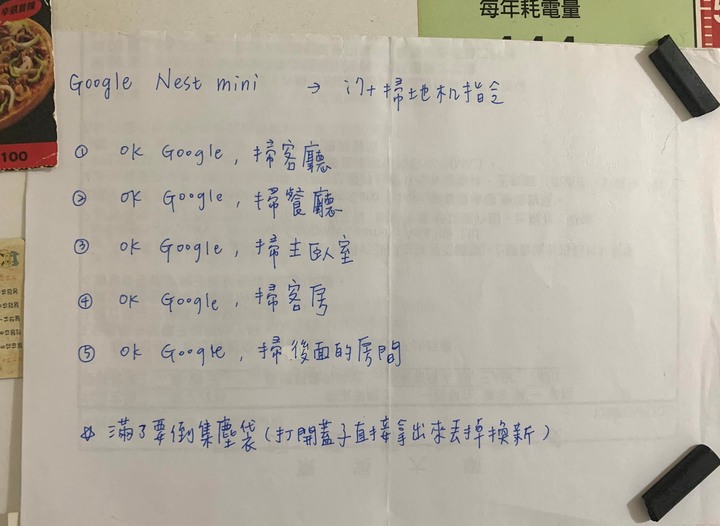 每年耗電量
100
Google Nest mini → i7+掃地机指令
① ok Google, 掃客廳
② ok Google, 掃餐廳
③ ok Google, 掃主臥室
④ ok Google, 掃客房
⑤ ok Google, 掃後面的房間
☆ 滿了要倒集塵袋(打開蓋子直接拿出來丟掉換新)